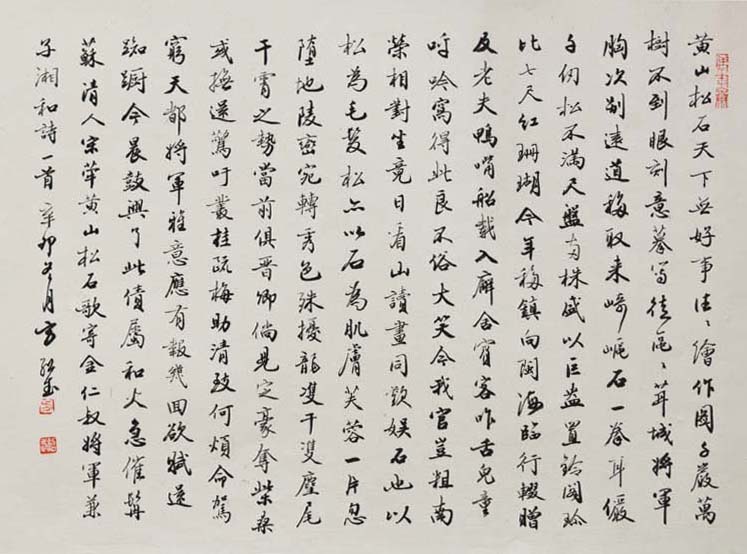 黄山松石天下無好事往〻繪作圖千巖萬
樹不到眼刻意摹寫徒區〻茸城將軍
胸次别遠道移取来崎嶇石一拳耳儼
千仞松不滿尺盤両株盛以巨盎置鈴閣珍
比七尺紅珊瑚今年移鎮向閩海臨行輟贈
及老夫鴨嘴船載入廨舍賓客咋舌兒童
呼吟窩得此良不俗大笑令我官豈粗南
榮相對坐竟日看山讀畫同歡娱石也以
松為毛髮松亦以石為肌膚芙蓉一片忽
墮地陵密宛轉秀色殊擾龍雙干雙麈尾
干霄之勢當前俱晋卿倘見定豪奪柴桑
或撫還驚吁叢桂疏梅助清致何煩命駕
窮天都將軍雅意應有報幾回欲賦還
踟躕今晨鼓興了此債屬和火急催髯
蘇清人宋犖黄山松石歌寄金仁叔將軍兼
子湘和詩一首辛卯冬月方